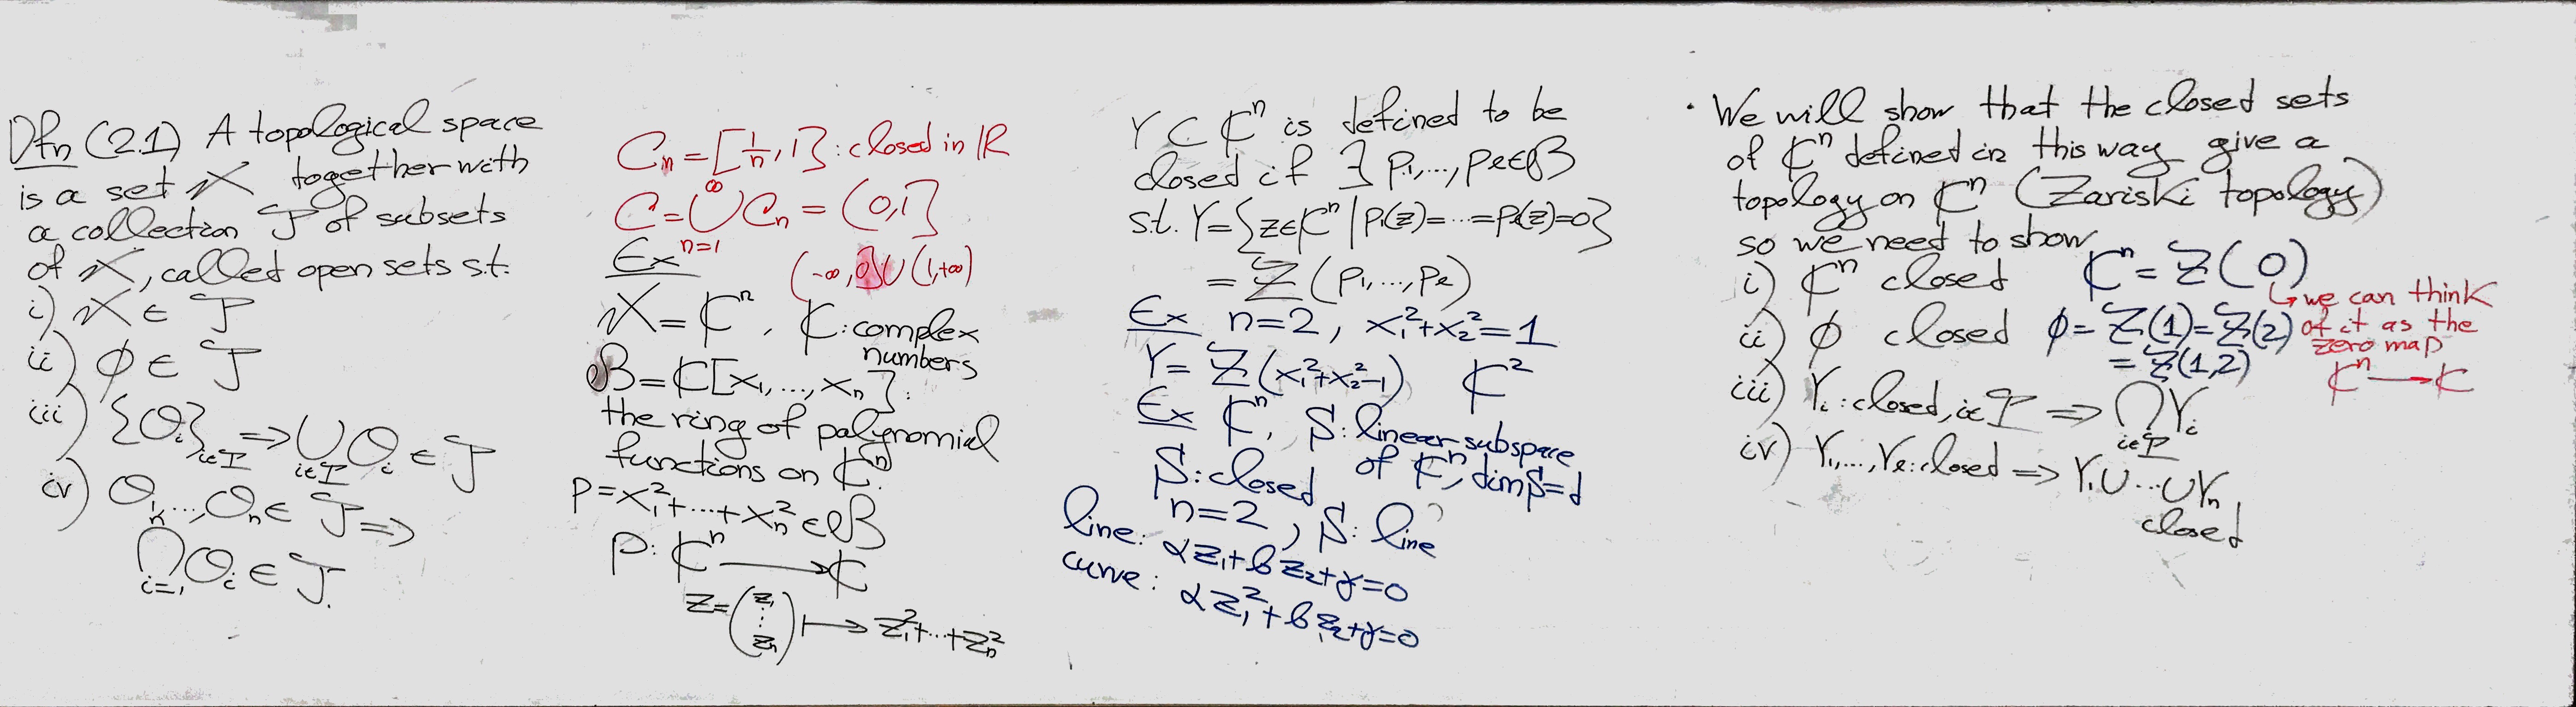 Dfn (2.1) A topological space
is a set X together with
a collection J of subsets
of X, called open sets s.t.
i) X ∈ J
ii) ∅ ∈ J
iii) {O_i}_{i∈I} ⇒ ⋃_{i∈I} O_i ∈ J
iv) O_1, ..., O_n ∈ J ⇒
⋂_{i=1}^n O_i ∈ J.
C_n = [1/n, 1] : closed in ℝ
C = ⋃_{n=1}^∞ C_n = (0,1]
(-∞,0] ∪ (1,+∞)
Ex
X = ℂ^n, ℂ: complex
numbers
B = ℂ[x_1, ..., x_n]:
the ring of polynomial
functions on ℂ^n.
P = x_1^2 + ... + x_n^2 ∈ B
P: ℂ^n → ℂ
z = (z_1 ⋮ z_n) ↦ z_1^2 + ... + z_n^2
Y ⊂ ℂ^n is defined to be
closed if ∃ P_1, ..., P_ℓ ∈ B
s.t. Y = {z ∈ ℂ^n | P_1(z) = ... = P_ℓ(z) = 0}
= Z(P_1, ..., P_ℓ)
Ex n=2, x_1^2 + x_2^2 = 1
Y = Z(x_1^2 + x_2^2 - 1) ℂ^2
Ex ℂ^n, S: linear subspace
of ℂ^n, dim S = d
S: closed
n=2, S: line
line: αz_1 + βz_2 + γ = 0
curve: αz_1^2 + βz_2 + γ = 0
· We will show that the closed sets
of ℂ^n defined in this way give a
topology on ℂ^n (Zariski topology)
so we need to show
i) ℂ^n closed ℂ^n = Z(0)
↳ we can think
of it as the
zero map
ℂ^n → ℂ
ii) ∅ closed ∅ = Z(1) = Z(2)
= Z(1,2)
iii) Y_i : closed, i∈I ⇒ ⋂_{i∈I} Y_i
iv) Y_1, ..., Y_ℓ : closed ⇒ Y_1 ∪ ... ∪ Y_n
closed